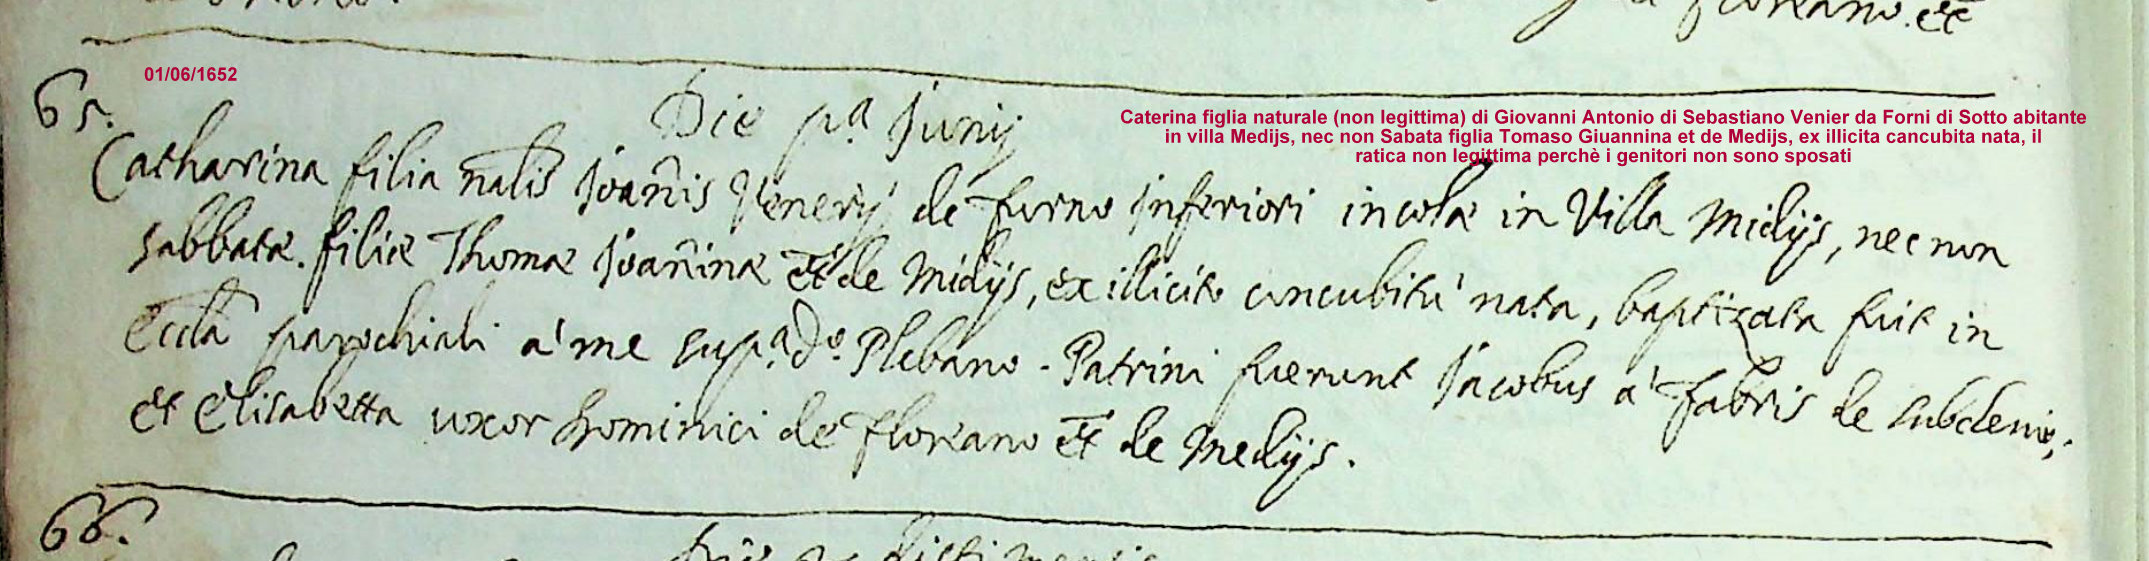 Floreano. et
01/06/1652
65.
Die p.ª Junij
Caterina figlia naturale (non legittima) di Giovanni Antonio di Sebastiano Venier da Forni di Sotto abitante
in villa Medijs, nec non Sabata figlia Tomaso Giuannina et de Medijs, ex illicita cancubita nata, il
ratica non legittima perchè i genitori non sono sposati
Catharina filia nalis Joanis Venerij de Furno Inferiori incolæ in Villa Midijs, nec non
Sabbatæ filiæ Thomæ Joaninæ et de Midijs, ex illicito concubitu nata, baptizata fuit in
Eccla parochiali a' me sup.ª d.º Plebano - Patrini fuerunt Jacobus a' Fabris de Subclevo,
et Elisabetta uxor Dominici de Floreano et de Medijs.
66.